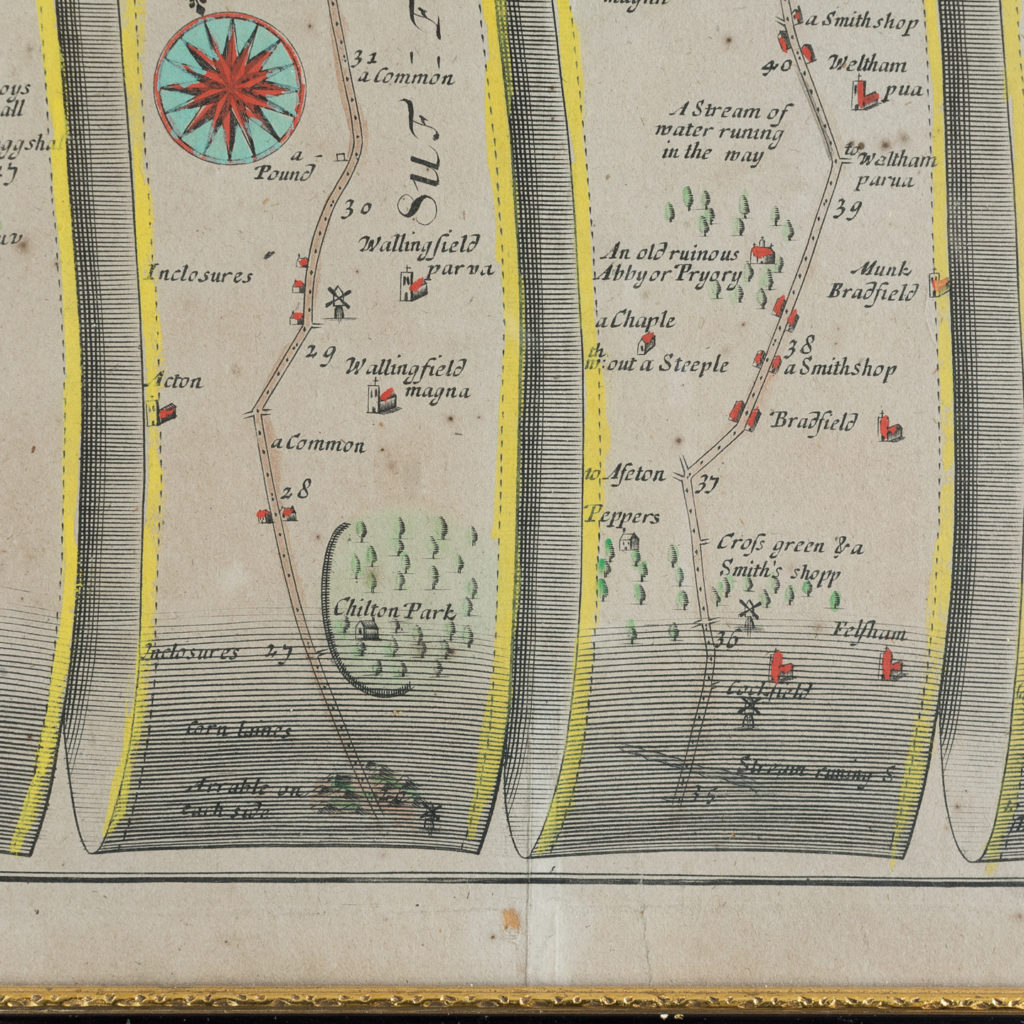 31
a Common
a
Pound
30
SUF-F
Wallingfield
parva
Inclosures
29
Wallingfield
magna
Acton
a Common
28
Chilton Park
Inclosures 27
Corn Lanes
Arrable on
each side
a Smith shop
40
Weltham
pua
A Stream of
water runing
in the way
to
Waltham
parua
39
An old ruinous
Abby or Pryory
Munk
Bradfield
a Chaple
th
w:out a Steeple
38
a Smith shop
Bradfield
to Aſeton
37
Peppers
Croſs green & a
Smith's shopp
36
Felſham
Cockfield
Stream runing S
35